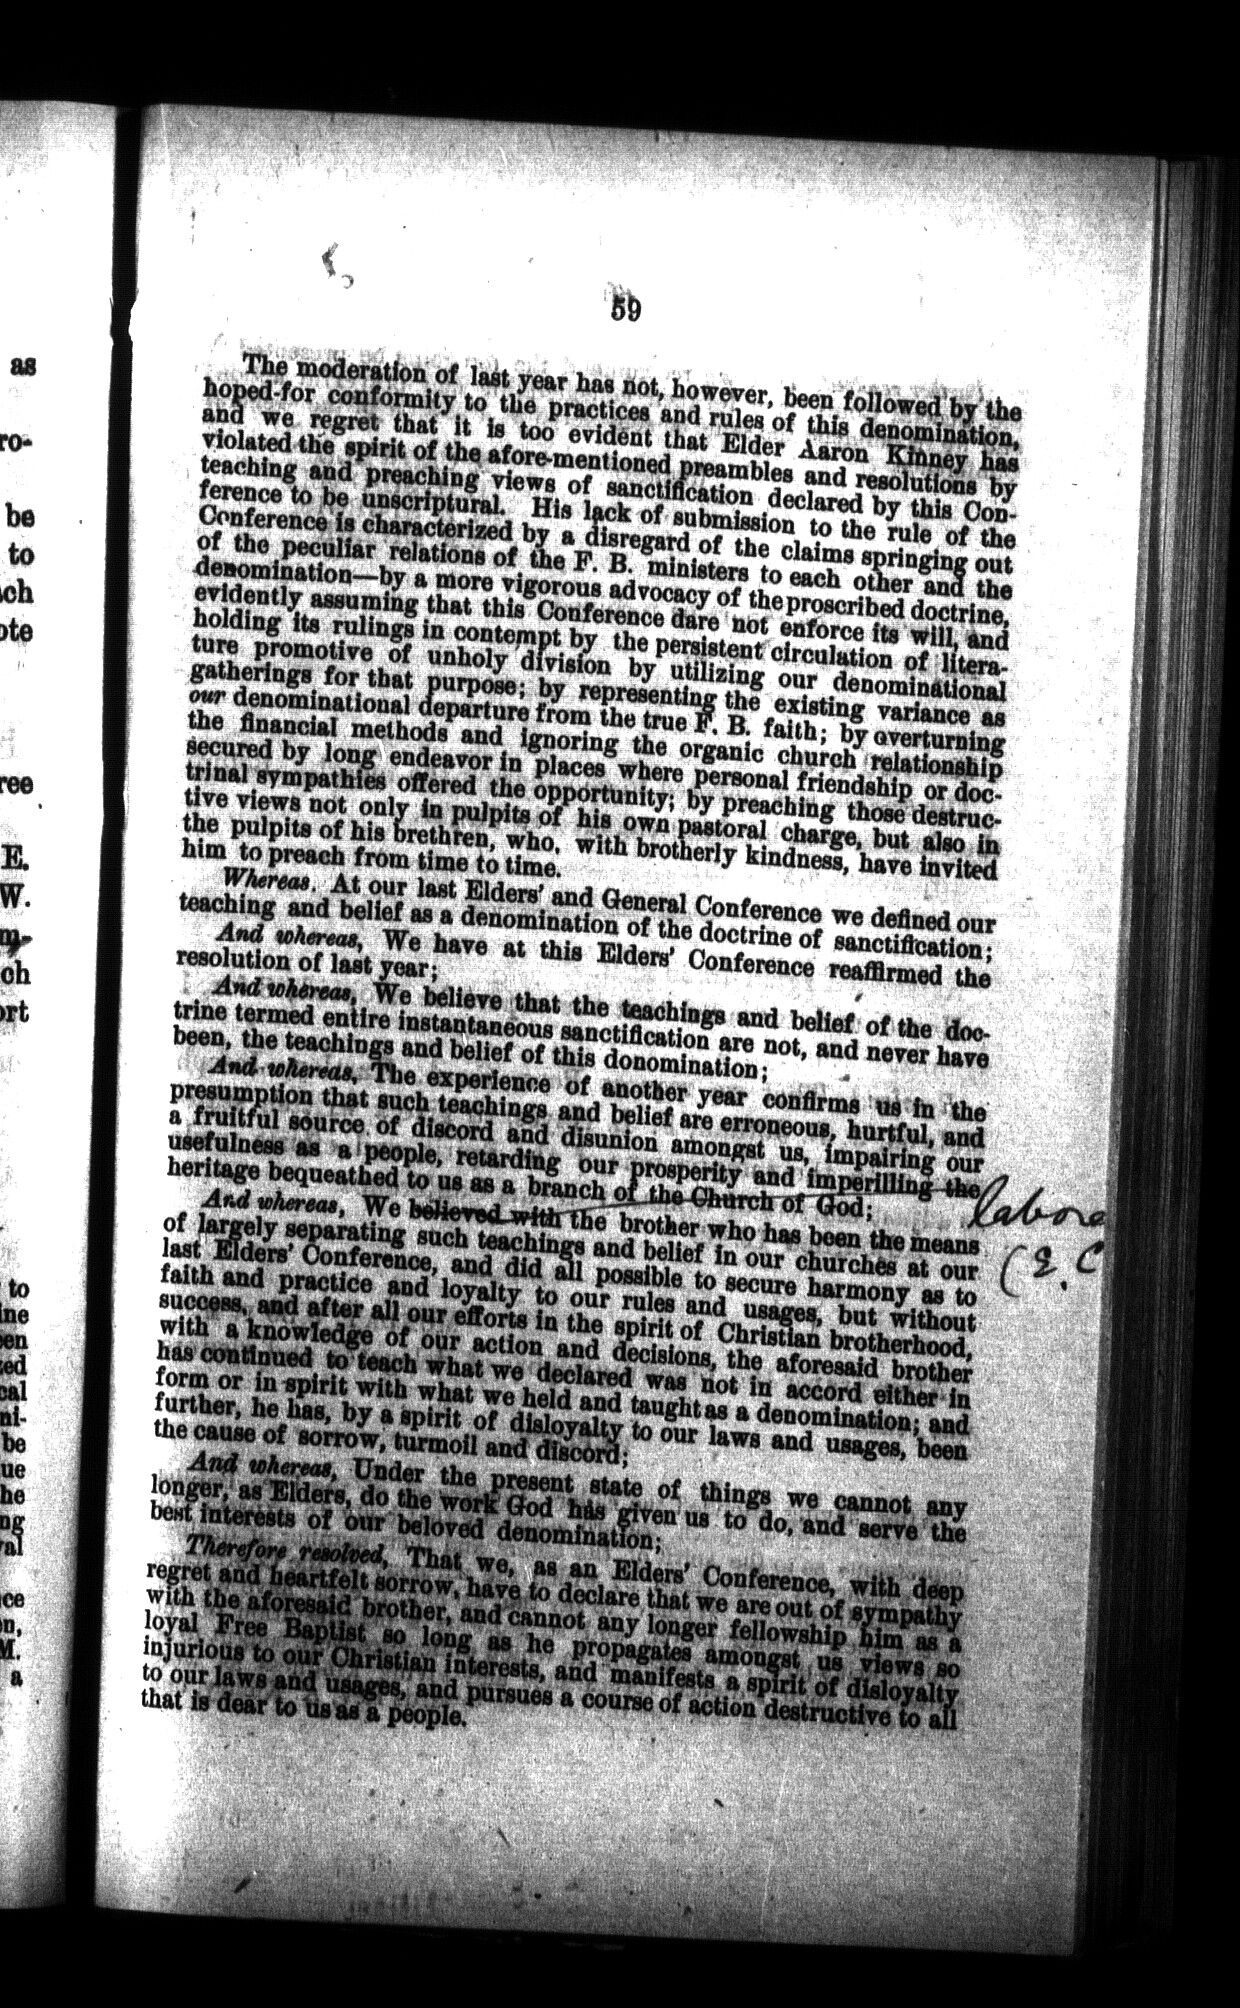 59
The moderation of last year has not, however, been followed by the
hoped-for conformity to the practices and rules of this denomination,
and we regret that it is too evident that Elder Aaron Kinney has
violated the spirit of the afore-mentioned preambles and resolutions by
teaching and preaching views of sanctification declared by this Con-
ference to be unscriptural. His lack of submission to the rule of the
Conference is characterized by a disregard of the claims springing out
of the peculiar relations of the F. B. ministers to each other and the
denomination—by a more vigorous advocacy of the proscribed doctrine,
evidently assuming that this Conference dare not enforce its will, and
holding its rulings in contempt by the persistent circulation of litera-
ture promotive of unholy division by utilizing our denominational
gatherings for that purpose; by representing the existing variance as
our denominational departure from the true F. B. faith; by overturning
the financial methods and ignoring the organic church relationship
secured by long endeavor in places where personal friendship or doc-
trinal sympathies offered the opportunity; by preaching those destruc-
tive views not only in pulpits of his own pastoral charge, but also in
the pulpits of his brethren, who, with brotherly kindness, have invited
him to preach from time to time.
Whereas. At our last Elders' and General Conference we defined our
teaching and belief as a denomination of the doctrine of sanctification;
And whereas, We have at this Elders' Conference reaffirmed the
resolution of last year;
And whereas, We believe that the teachings and belief of the doc-
trine termed entire instantaneous sanctification are not, and never have
been, the teachings and belief of this donomination;
And whereas, The experience of another year confirms us in the
presumption that such teachings and belief are erroneous, hurtful, and
a fruitful source of discord and disunion amongst us, impairing our
usefulness as a people, retarding our prosperity and imperilling the
heritage bequeathed to us as a branch of the Church of God;
And whereas, We believed with the brother who has been the means
of largely separating such teachings and belief in our churches at our
last Elders' Conference, and did all possible to secure harmony as to
faith and practice and loyalty to our rules and usages, but without
success, and after all our efforts in the spirit of Christian brotherhood,
with a knowledge of our action and decisions, the aforesaid brother
has continued to teach what we declared was not in accord either in
form or in spirit with what we held and taught as a denomination; and
further, he has, by a spirit of disloyalty to our laws and usages, been
the cause of sorrow, turmoil and discord;
And whereas, Under the present state of things we cannot any
longer, as Elders, do the work God has given us to do, and serve the
best interests of our beloved denomination;
Therefore resolved, That we, as an Elders' Conference, with deep
regret and heartfelt sorrow, have to declare that we are out of sympathy
with the aforesaid brother, and cannot any longer fellowship him as a
loyal Free Baptist so long as he propagates amongst us views so
injurious to our Christian interests, and manifests a spirit of disloyalty
to our laws and usages, and pursues a course of action destructive to all
that is dear to us as a people.
labore
(E. C
as
ro-
be
to
ote
ree
E.
W.
ch
ort
to
ine
een
zed
cal
ni-
be
ue
he
ng
al
ce
on,
M.
a